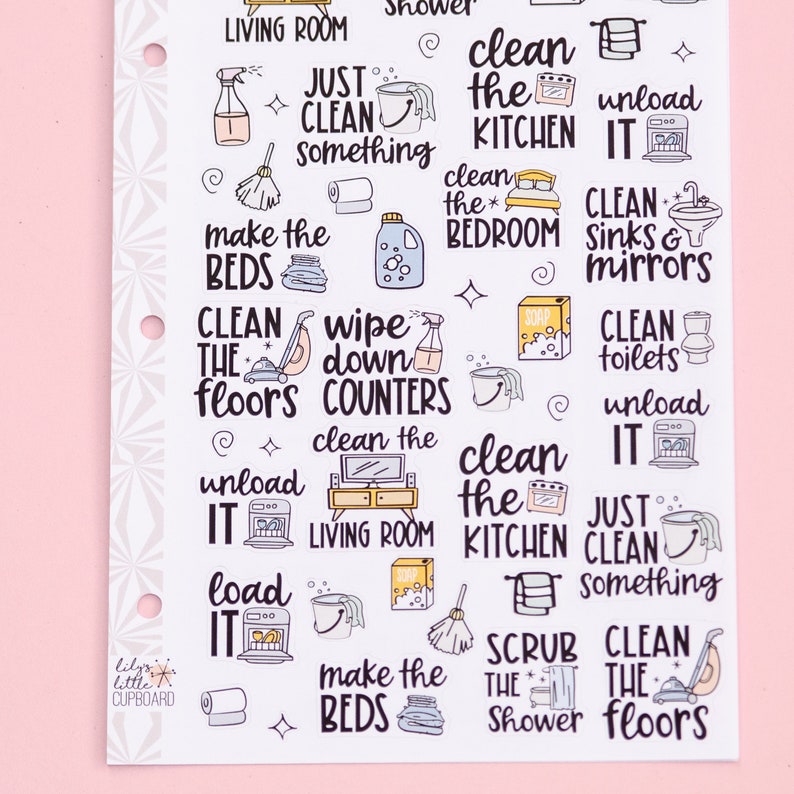 LIVING ROOM
Shower
JUST
CLEAN
something
clean
the
KITCHEN
unload
IT
clean
the
BEDROOM
make the
BEDS
CLEAN
sinks &
mirrors
CLEAN
THE
floors
wipe
down
COUNTERS
SOAP
CLEAN
toilets
unload
IT
clean the
LIVING ROOM
unload
IT
clean
the
KITCHEN
JUST
CLEAN
something
load
IT
SOAP
make the
BEDS
SCRUB
THE
Shower
CLEAN
THE
floors
lily's
little
CUPBOARD